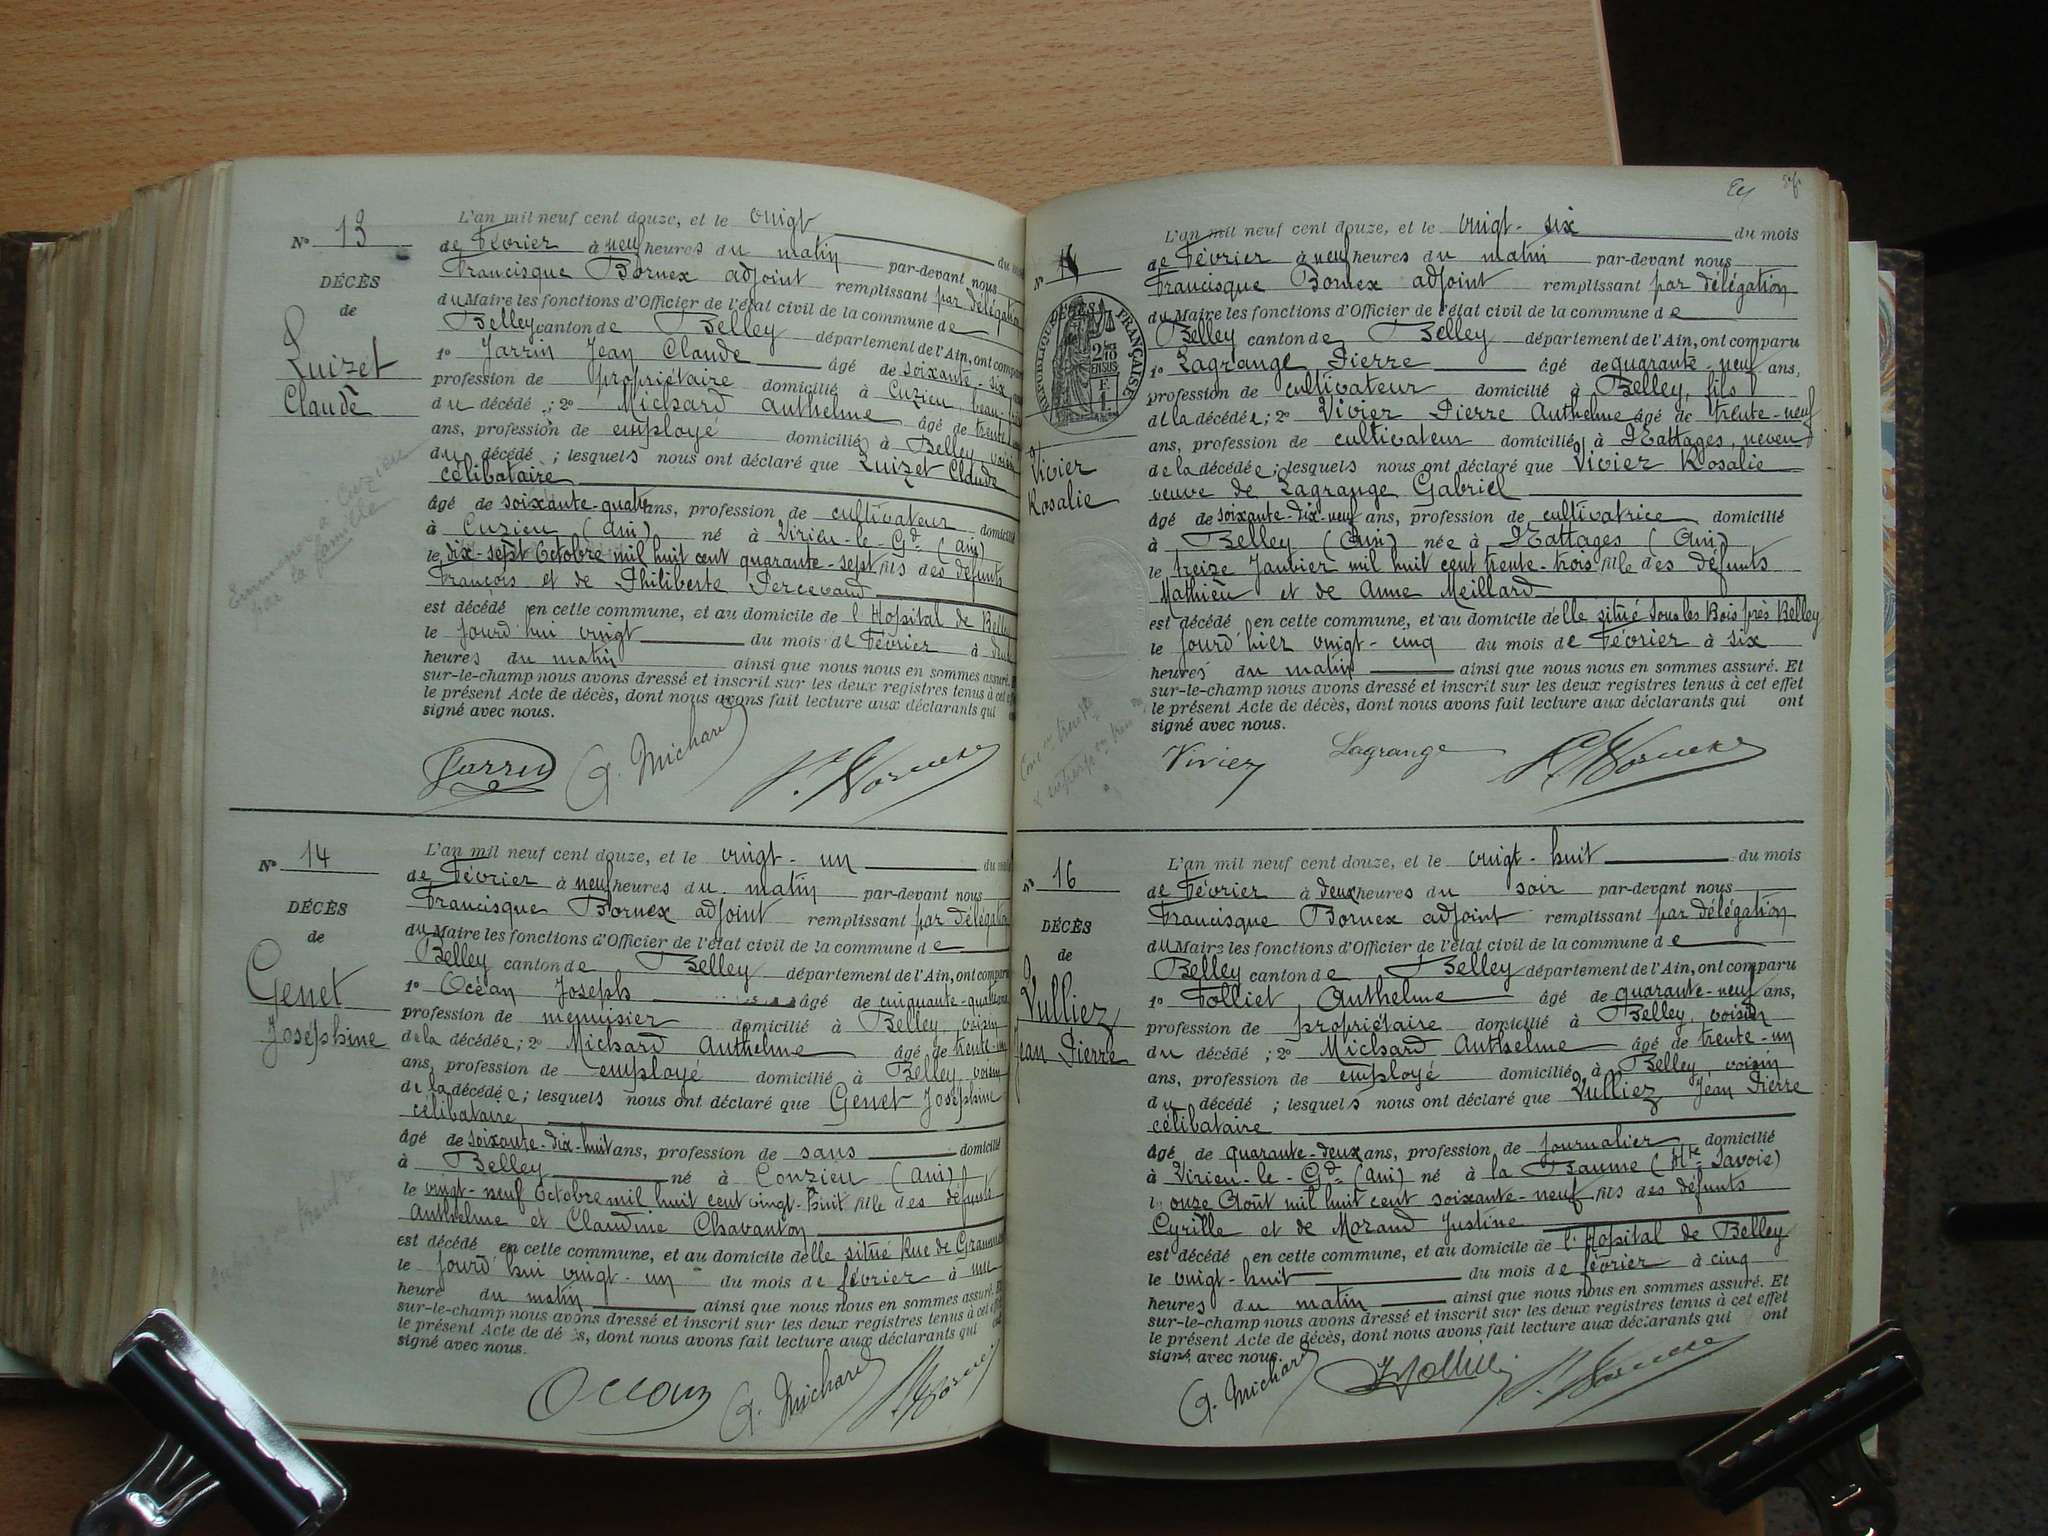 N° 13
DÉCÈS
de
Luizet
Claude
L'an mil neuf cent douze, et le vingt
de Février à neuf heures du matin par-devant nous
Francisque Bornex adjoint remplissant par délégation
du Maire les fonctions d'Officier de l'état civil de la commune de
Belley canton de Belley département de l'Ain, ont comparu
1° Jarrin Jean Claude âgé de soixante-six
profession de propriétaire domicilié à Cuzieu, beau-
du décédé ; 2° Michard Anthelme âgé de trente
ans, profession de employé domicilié à Belley, voisin
du décédé ; lesquels nous ont déclaré que Luizet Claude
célibataire
âgé de soixante-quatre ans, profession de cultivateur domicilié
à Cuzieu (Ain) né à Virieu-le-Gd (Ain)
le dix-sept Octobre mil huit cent quarante-sept fils des défunts
François et de Philiberte Percevaud
est décédé en cette commune, et au domicile de l'Hopital de Belley
le jourd'hui vingt du mois de Février à
heures du matin ainsi que nous nous en sommes assuré. Et
sur-le-champ nous avons dressé et inscrit sur les deux registres tenus à cet
le présent Acte de décès, dont nous avons fait lecture aux déclarants qui
signé avec nous.
Jarrin A. Michard F. Bornex
N° 14
DÉCÈS
de
Genet
Joséphine
L'an mil neuf cent douze, et le vingt-un du mois
de Février à neuf heures du matin par-devant nous
Francisque Bornex adjoint remplissant par délégation
du Maire les fonctions d'Officier de l'état civil de la commune de
Belley canton de Belley département de l'Ain, ont comparu
1° Océan Joseph âgé de cinquante-quatre
profession de menuisier domicilié à Belley, voisin
de la décédée ; 2° Michard Anthelme âgé de trente-un
ans, profession de employé domicilié à Belley, voisin
de la décédée ; lesquels nous ont déclaré que Genet Joséphine
célibataire
âgé de soixante-dix-huit ans, profession de sans domicilié
à Belley né à Conzieu (Ain)
le vingt-neuf Octobre mil huit cent vingt-huit fille des défunts
Anthelme et Claudine Chavanton
est décédé en cette commune, et au domicile de elle situé Rue de
le jourd'hui vingt-un du mois de février à une
heure du matin ainsi que nous nous en sommes assuré. Et
sur-le-champ nous avons dressé et inscrit sur les deux registres tenus à cet effet
le présent Acte de décès, dont nous avons fait lecture aux déclarants qui
signé avec nous.
Océan A. Michard F. Bornex
N°
RÉPUBLIQUE FRANÇAISE
Vivier
Rosalie
L'an mil neuf cent douze, et le vingt-six du mois
de Février à neuf heures du matin par-devant nous
Francisque Bornex adjoint remplissant par délégation
du Maire les fonctions d'Officier de l'état civil de la commune de
Belley canton de Belley département de l'Ain, ont comparu
1° Lagrange Pierre âgé de quarante-neuf ans,
profession de cultivateur domicilié à Belley, fils
de la décédée ; 2° Vivier Pierre Anthelme âgé de trente-neuf
ans, profession de cultivateur domicilié à Nattages, neveu
de la décédée ; lesquels nous ont déclaré que Vivier Rosalie
veuve de Lagrange Gabriel
âgé de soixante-dix-neuf ans, profession de cultivatrice domicilié
à Belley (Ain) née à Nattages (Ain)
le treize Janvier mil huit cent trente-trois fille des défunts
Mathieu et de Anne Meillard
est décédé en cette commune, et au domicile de elle situé sous les Bois près Belley
le jourd'hier vingt-cinq du mois de Février à six
heures du matin ainsi que nous nous en sommes assuré. Et
sur-le-champ nous avons dressé et inscrit sur les deux registres tenus à cet effet
le présent Acte de décès, dont nous avons fait lecture aux déclarants qui ont
signé avec nous.
Vivier Lagrange F. Bornex
N° 16
DÉCÈS
de
Vulliez
Jean Pierre
L'an mil neuf cent douze, et le vingt-huit du mois
de Février à deux heures du soir par-devant nous
Francisque Bornex adjoint remplissant par délégation
du Maire les fonctions d'Officier de l'état civil de la commune de
Belley canton de Belley département de l'Ain, ont comparu
1° Tolliet Anthelme âgé de quarante-neuf ans,
profession de propriétaire domicilié à Belley, voisin
du décédé ; 2° Michard Anthelme âgé de trente-un
ans, profession de employé domicilié à Belley, voisin
du décédé ; lesquels nous ont déclaré que Vulliez Jean Pierre
célibataire
âgé de quarante-deux ans, profession de journalier domicilié
à Virieu-le-Gd (Ain) né à la Baume (Hte Savoie)
le onze Août mil huit cent soixante-neuf fils des défunts
Cyrille et de Morand Justine
est décédé en cette commune, et au domicile de l'Hopital de Belley
le vingt-huit du mois de février à cinq
heures du matin ainsi que nous nous en sommes assuré. Et
sur-le-champ nous avons dressé et inscrit sur les deux registres tenus à cet effet
le présent Acte de décès, dont nous avons fait lecture aux déclarants qui ont
signé avec nous.
A. Michard Tolliet F. Bornex